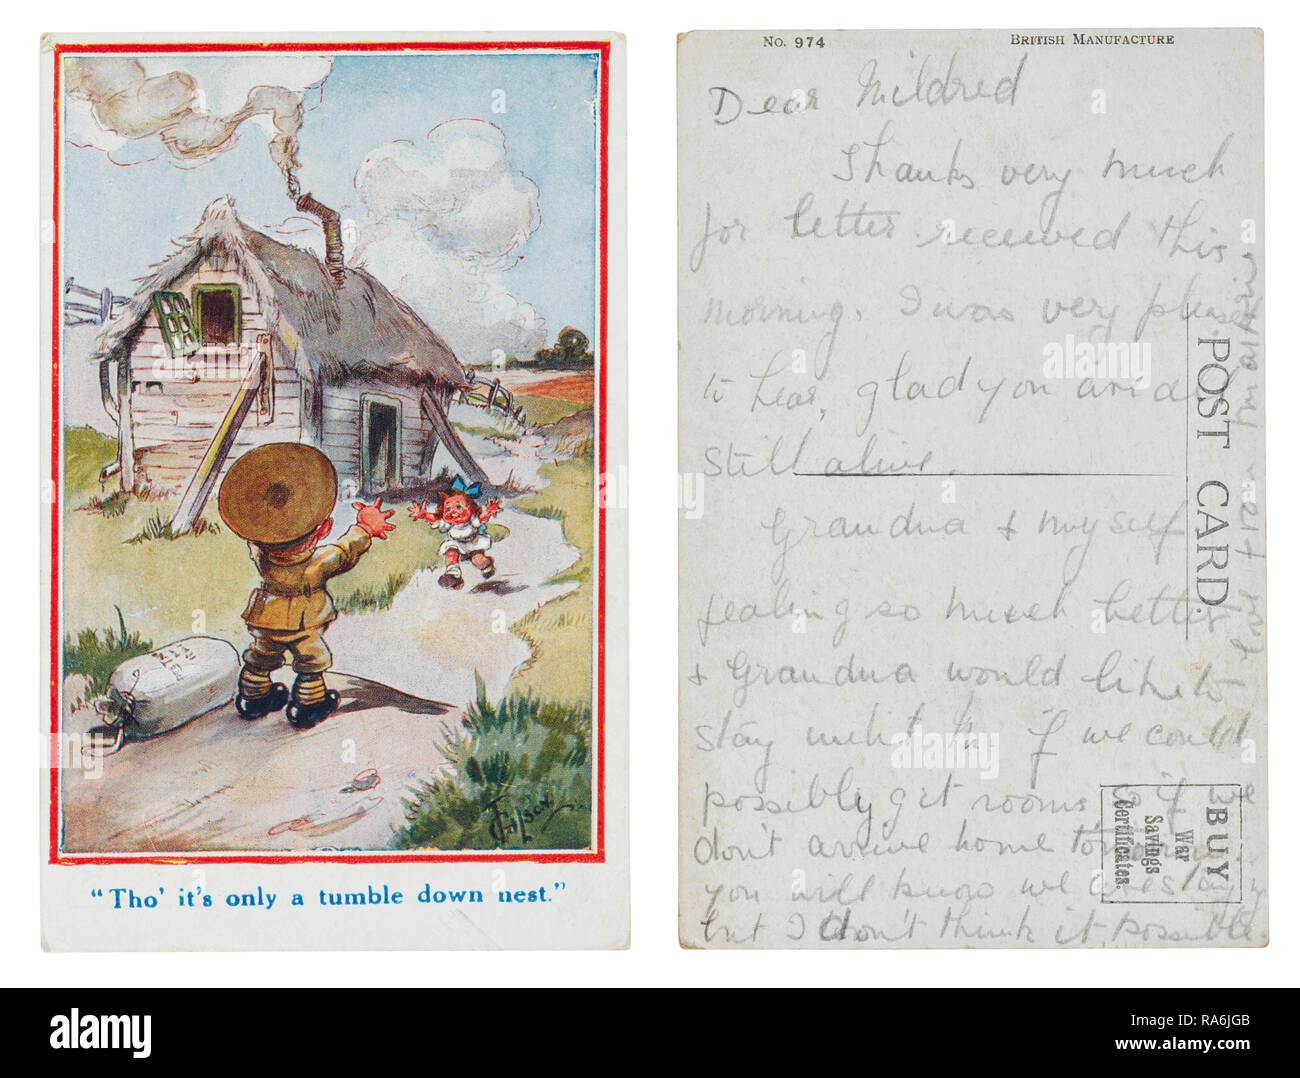 "Tho' it's only a tumble down nest."
No. 974
BRITISH MANUFACTURE
Dear Mildred
Thanks very much
for letter received this
morning. I was very pleased
to hear, glad you are
still alive.
Grandma & myself
fealing so much better
& Grandma would like to
stay until if we could
possibly get rooms & if we
don't arrive home
you will know we
but I don't think it possible
love
POST CARD.
BUY
War
Savings
Certificates.
alamy
Image ID: RA6JGB
www.alamy.com